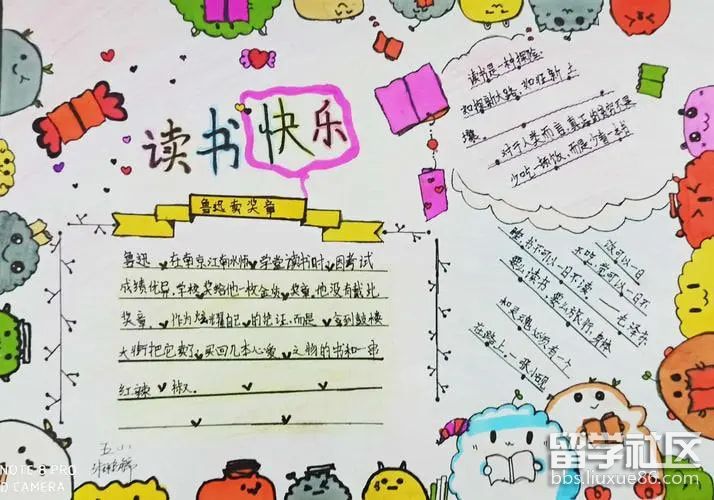 读书快乐
鲁迅卖奖章
鲁迅在南京江南水师学堂读书时因考试
成绩优异,学校奖给他一枚金质奖章,他没有戴此
奖章,作为炫耀自己的凭证,而是拿到鼓楼
大街把它卖了,买回几本心爱之物的书和一串
红辣椒.
读书是一种探险
如探新大陆,如征新土
壤
对于人类而言,真正的贫穷不是
少吃一顿饭,而是少看一本书
饭可以一日
不吃,觉可以一日不
睡,书不可以一日不读——毛泽东
要么读书,要么旅行,身体
和灵魂必须有一个
在路上
五
NOTE 8 PRO
D CAMERA
留学社区
bbs.liuxue86.com